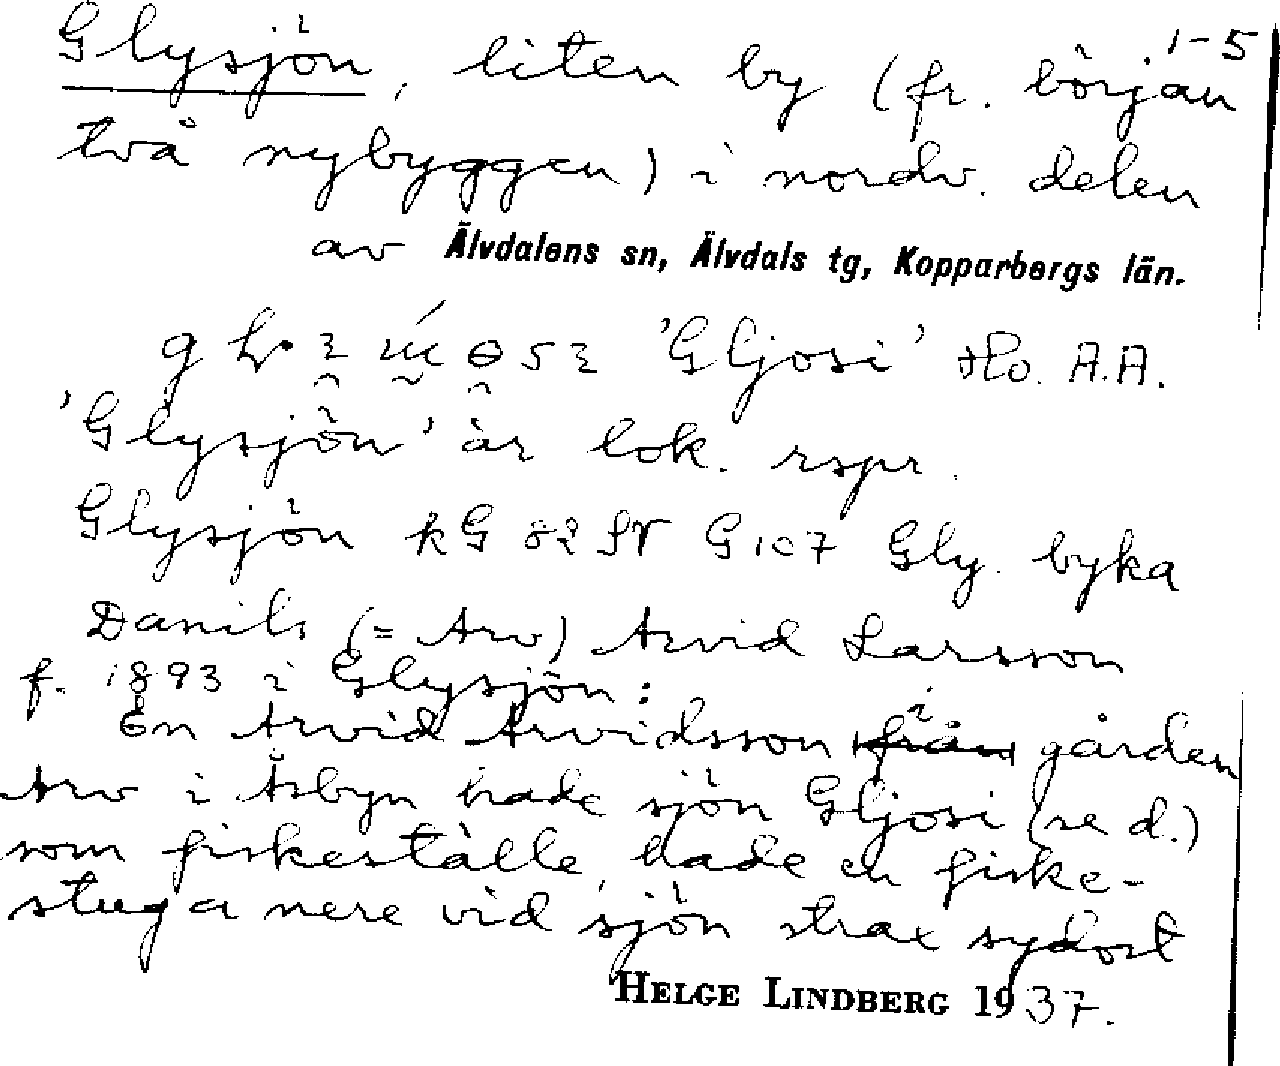 1-5
Glysjön, liten by (fr. början
två nybyggen) i nordv. delen
av Älvdalens sn, Älvdals tg, Kopparbergs län.
'Gljosi' Ho. A.A.
'Glysjön' är lok. rspr.
Glysjön kG 82 G 107 Gly. byka
Danils (= Arv) Arvid Larsson
f. 1893 i Glysjön:
En Arvid Arvidsson från i gården
Arv i Åsbyn hade sjön Gljosi (se d.)
som fiskeställe, hade en fiske-
stuga nere vid sjön strax sydost
HELGE LINDBERG 1937.